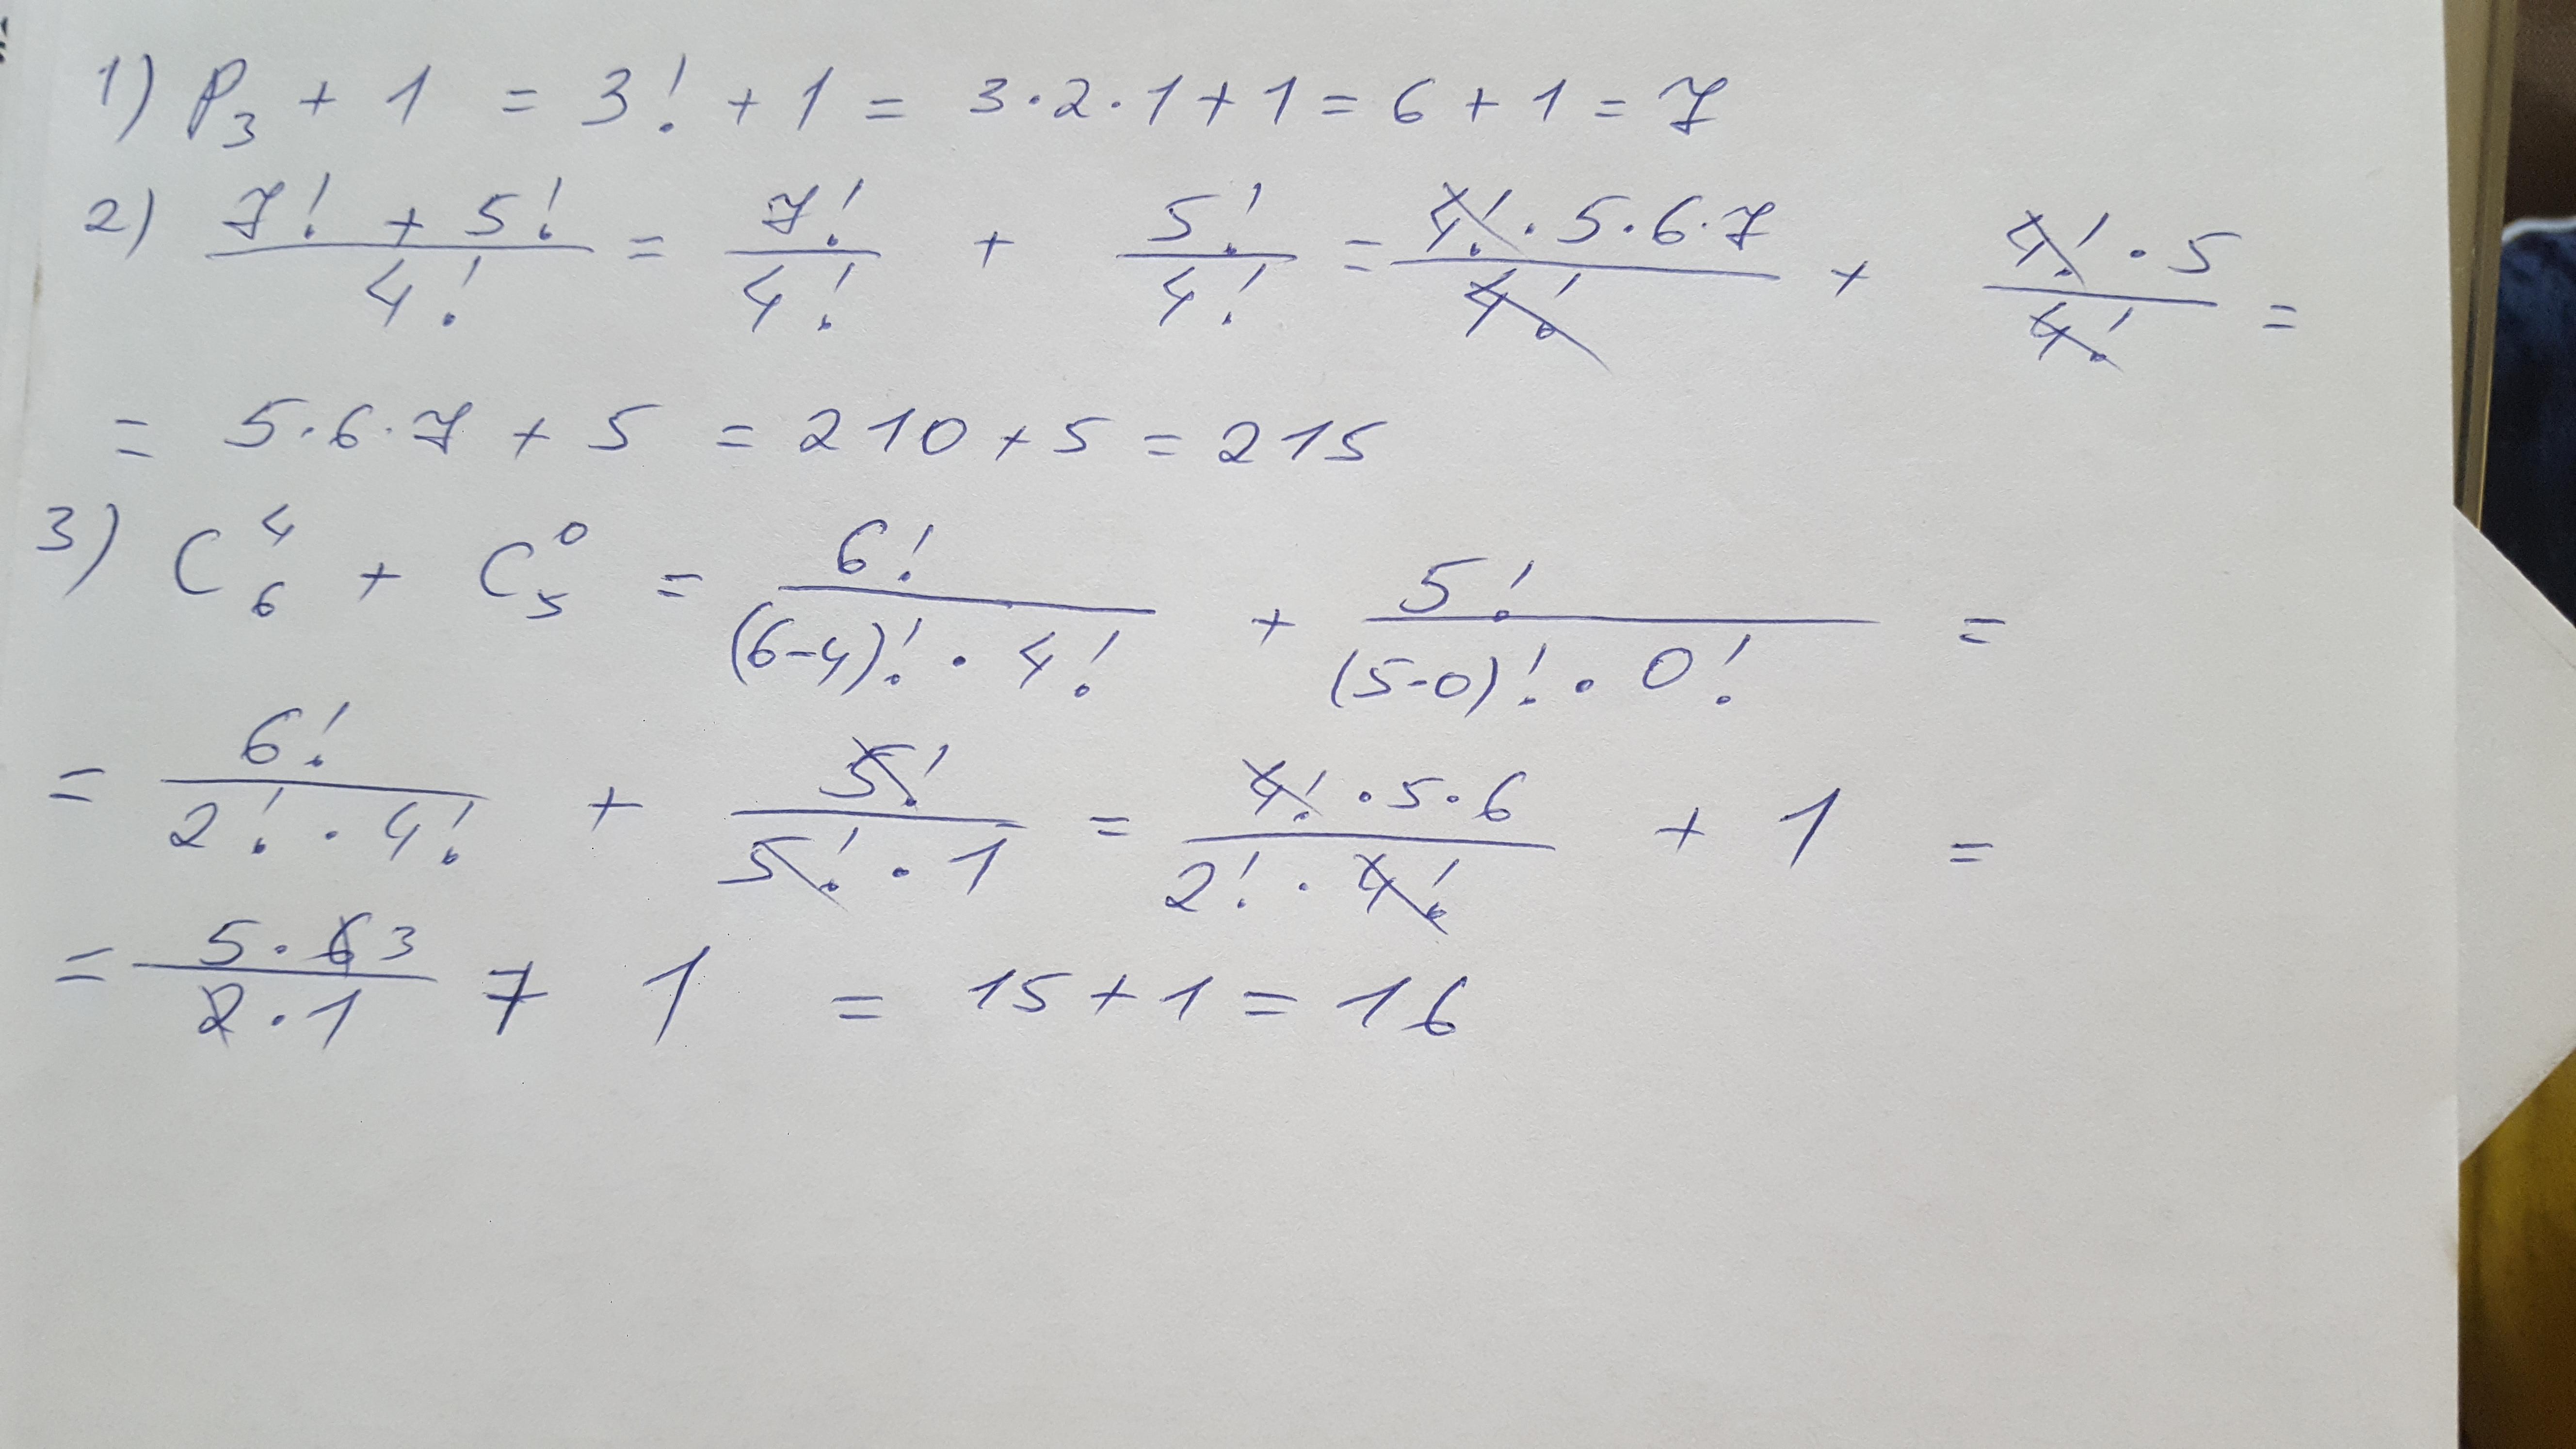 1) P₃ + 1 = 3! + 1 = 3·2·1 + 1 = 6 + 1 = 7
2) (7! + 5!)/4! = 7!/4! + 5!/4! = (4!·5·6·7)/4! + (4!·5)/4! =
= 5·6·7 + 5 = 210 + 5 = 215
3) C₆⁴ + C₅⁰ = 6!/((6-4)!·4!) + 5!/((5-0)!·0!) =
= 6!/(2!·4!) + 5!/(5!·1) = (4!·5·6)/(2!·4!) + 1 =
= (5·6 3)/(2·1) + 1 = 15 + 1 = 16